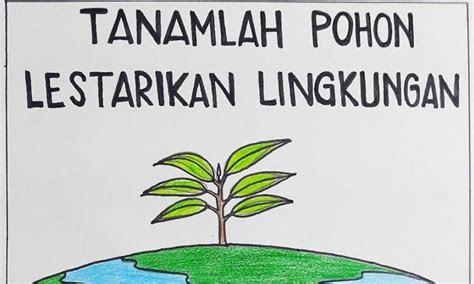 TANAMLAH POHON
LESTARIKAN LINGKUNGAN